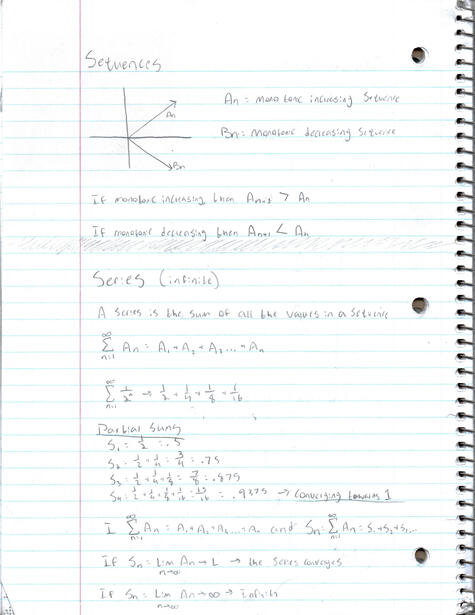 Sequences
An
An = monotonic increasing Sequence
Bn = Monotonic decreasing Sequence
Bn
If monotonic increasing then An+1 > An
If monotonic decreasing then An+1 < An
Series (infinite)
A series is the sum of all the values in a Sequence
∞∑n=1 An = A1 + A2 + A3 ... + An
∞∑n=1 1/2ⁿ → 1/2 + 1/4 + 1/8 + 1/16
Partial Sums
S1 = 1/2 = .5
S2 = 1/2 + 1/4 = 3/4 = .75
S3 = 1/2 + 1/4 + 1/8 = 7/8 = .875
S4 = 1/2 + 1/4 + 1/8 + 1/16 = 15/16 = .9375 → Converging towards 1
∞∑n=1 An = A1 + A2 + A3 ... An and Sn = ∞∑n=1 An = S1 + S2 + S3...
If Sn = Lim n→∞ An → L → the series converges
If Sn = Lim n→∞ An → ∞ → infinity